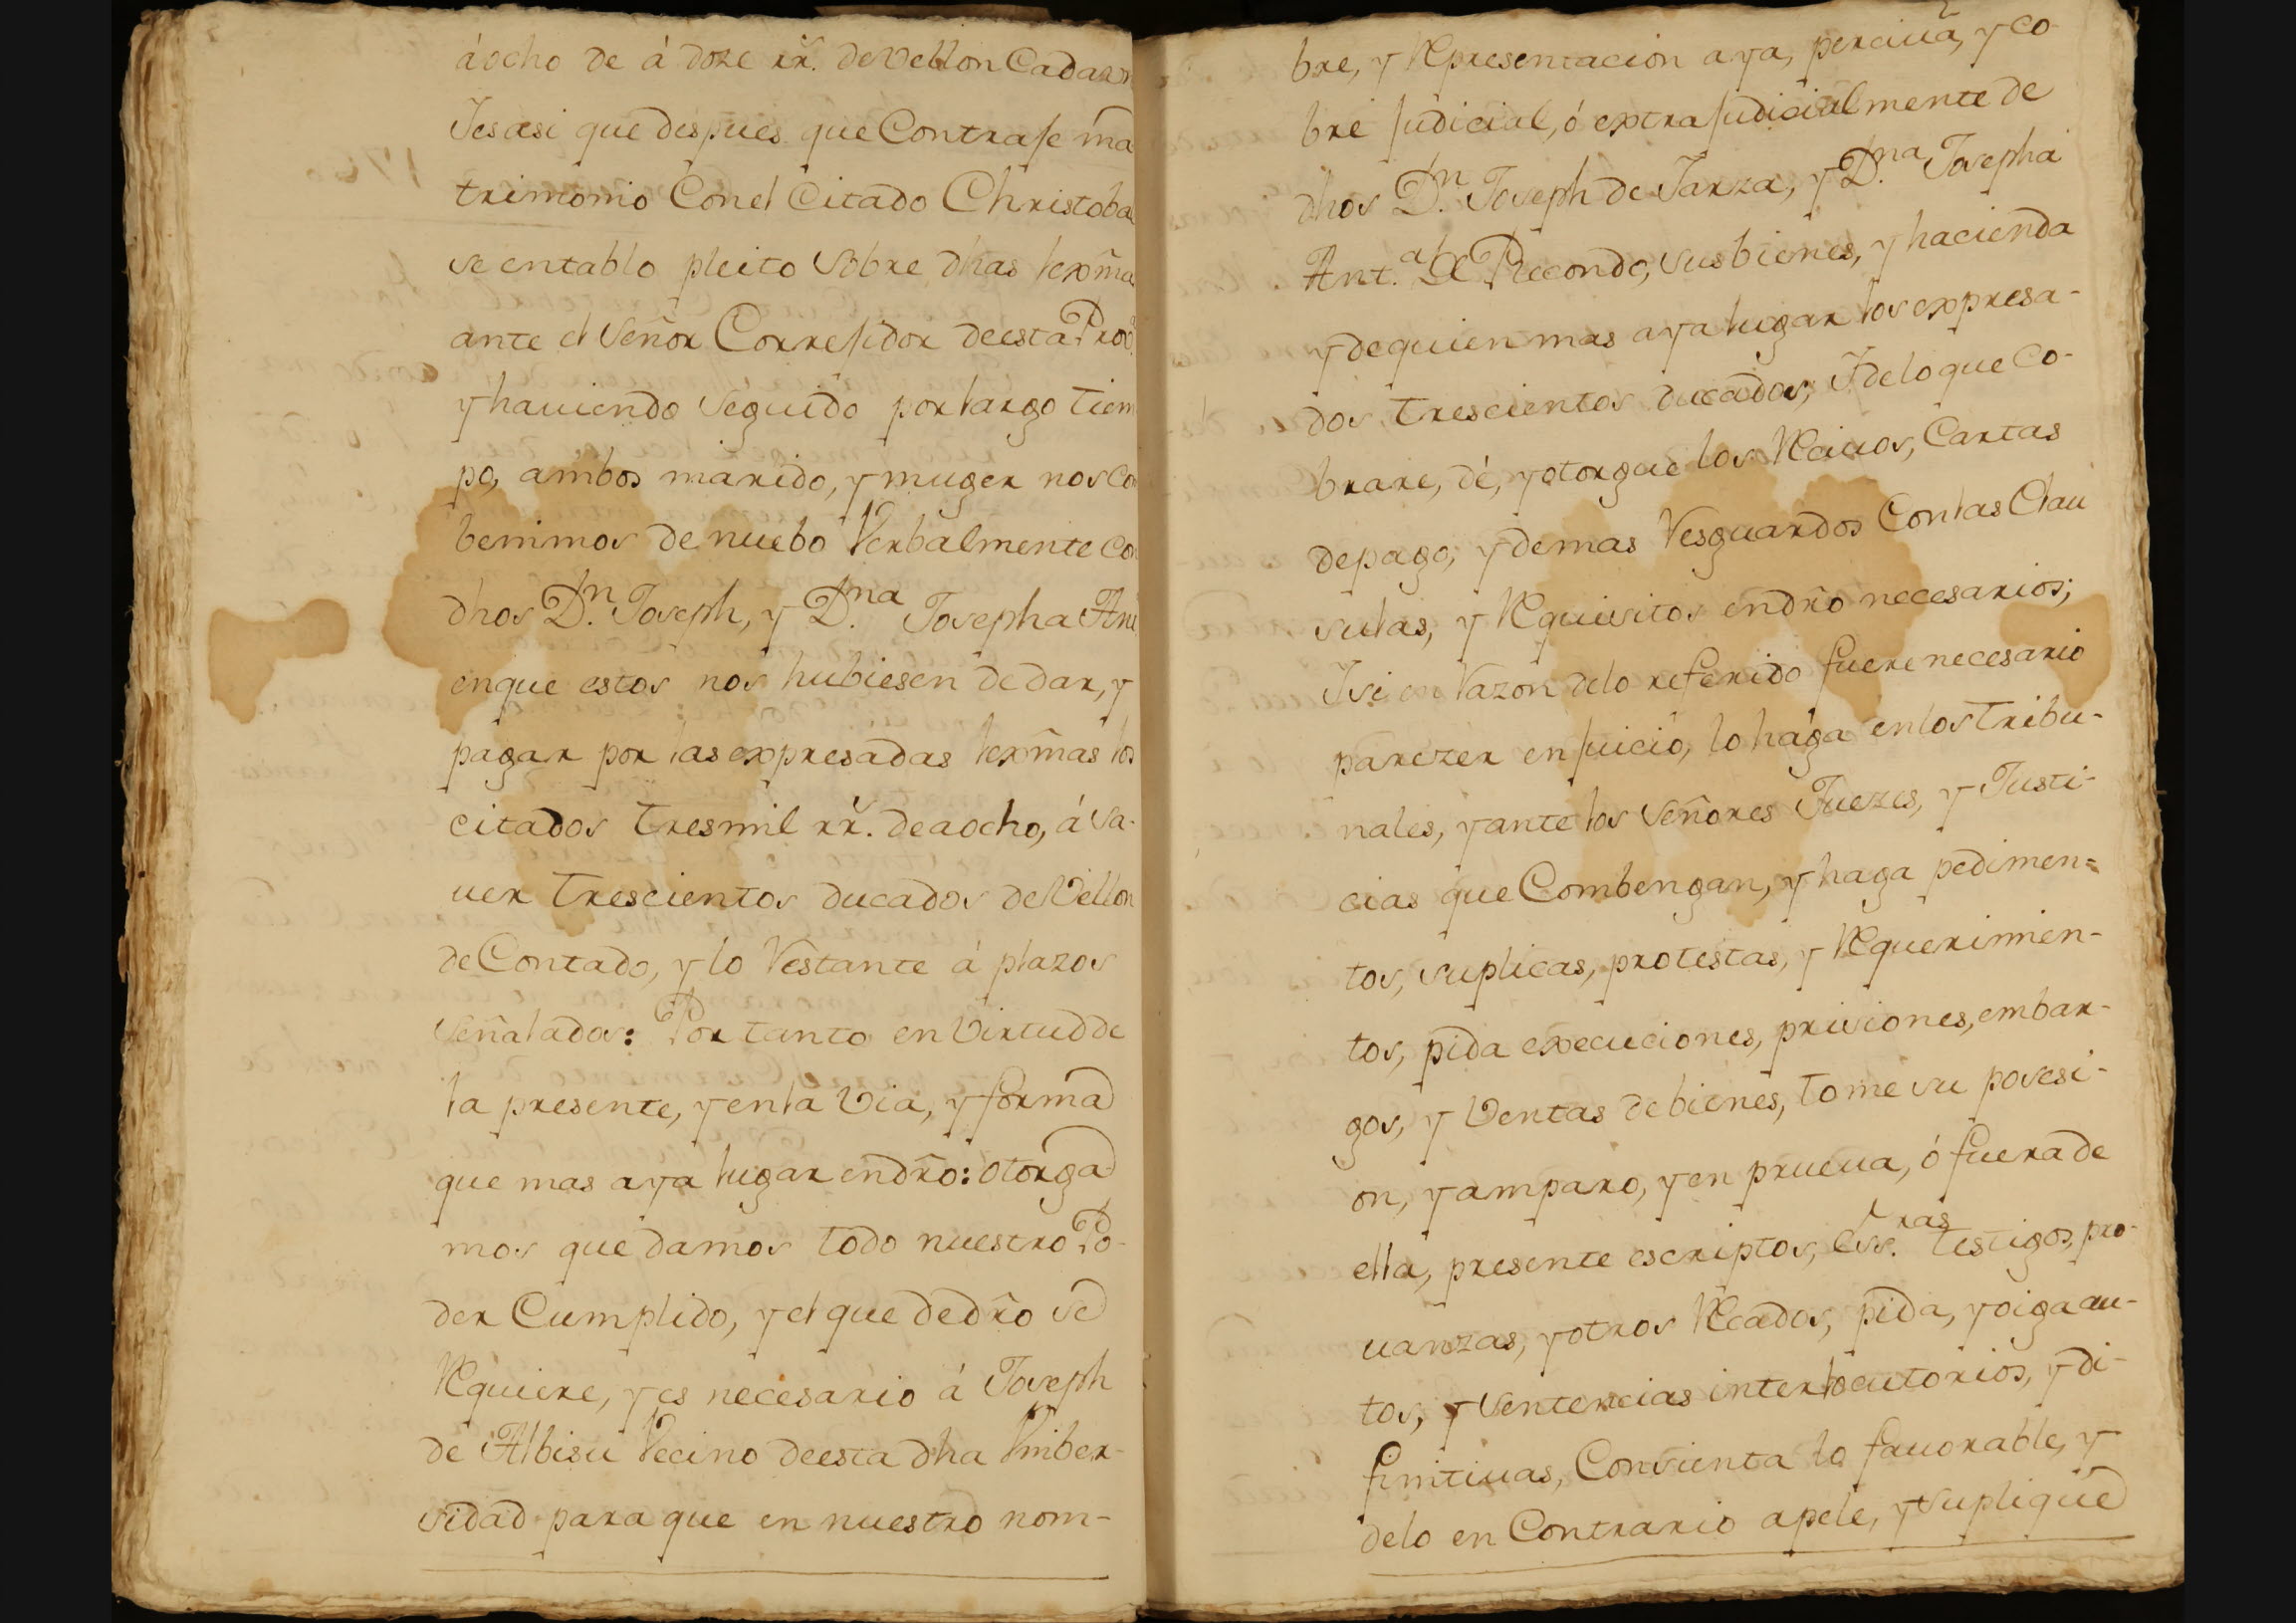 á ocho de á doze rr.̃ de Vellon Cada
Jes asi que despues que Contraje ma
trimonio Con el Citado Christoba
se entablo pleito sobre dhas lexm̃a
ante el Señor Correjidor de esta Prov.ª
y hauiendo seguido por largo tiem
po, ambos marido, y muger nos Co
benimos de nuebo Verbalmente Co
dhos D.n Joseph, y D.na Josepha Ant
en que estos nos hubiesen de dar, y
pagar por las expresadas lexm̃as los
citados tres mil rr.̃ de a ocho, á sa-
uer trescientos ducados de Vellon
de Contado, y lo Restante á plazos
señalados: Por tanto en Virtud de
la presente, y en la Via, y forma
que mas aya lugar en dr̃o: otorga
mos que damos todo nuestro Po-
der Cumplido, y el que de dr̃o se
Requiere, y es necesario á Joseph
de Albisu Vecino de esta dha Vniber-
sidad para que en nuestro nom-
bre, y Representacion aya, perciua, y co-
bre judicial, ó extrajudicialmente de
dhos D.n Joseph de Jarza, y D.na Josepha
Ant.a de Recondo, sus bienes, y hacienda
y de quien mas aya lugar los expresa-
dos trescientos ducados; J de lo que Co-
brare, dé, y otorgue los Reciuos, Cartas
de pago, y demas Resguardos Con las Clau
sulas, y Requisitos en dr̃o necesarios;
J si en Razon de lo referido fuere necesario
parezer en juicio, lo hága en los Tribu-
nales, y ante los Señores Juezes, y Justi-
cias que Combengan, y haga pedimen=
tos, suplicas, protestas, y Requerimien-
tos, pida execuciones, prisiones, embar-
gos, y Ventas de bienes, tome su posesi-
on, y amparo, y en prueua, ó fuera de
ella, presente escriptos, Ess.ras testigos, pro-
uanzas, y otros Recados, pida, y oiga au-
tos, y sentencias interlocutorios, y di-
finitiuas, Consienta lo fauorable, y
de lo en Contrario apele, y suplique